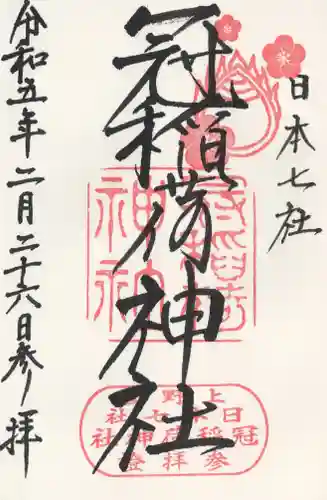 日本七社
冠稲荷神社
令和五年二月二十六日参拝
冠稲荷神社
上野
日七社
冠稲荷神社
参拝證